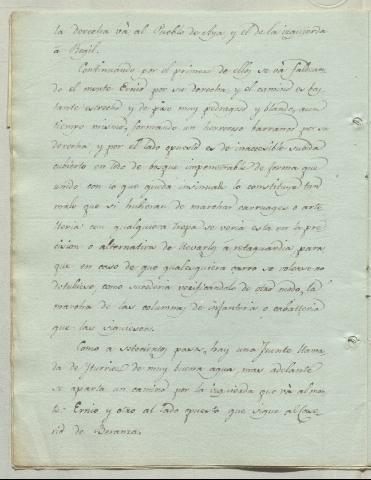 la derecha vá al Pueblo de Aya, y el de la izquierda
à Regil.
Continuando por el primero de ellos se vá faldean-
do el monte Ernio por su derecha, y el camino es bas
tante estrecho y de piso muy pedregoso y blando, à un
tiempo mismo, formando un horroroso barranco por su
derecha y por el lado opuesto es de inaccesible subida
cubierto en todo de bosque impenetrable de forma que
unido con lo que queda insinuado lo constituye tan
malo que si hubieran de marchar carruages o arti-
lleria con qualquiera tropa se veria esta en la pre-
cision o alternativa de llevarlos a retaguardia para
que en caso de que qualesquiera carro se volcase no
detubiese, como sucederia verificandolo de otro modo, la
marcha de las columnas de infanteria o caballeria
que las siguiesen.
Como a setecientos pasos, hay una fuente llama
da de Iturrioz de muy buena agua, mas adelante
se aparta un camino por la izquierda que vá al mon-
te Ernio y otro al lado opuesto que sigue al Case
rio de Beranza.